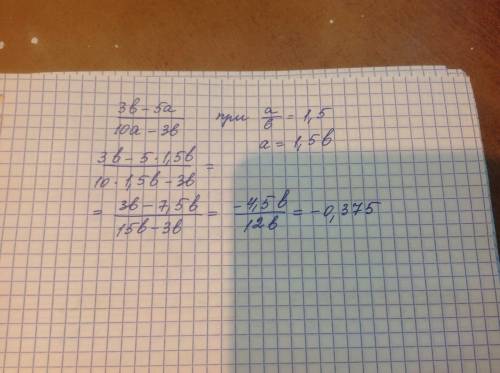 3в − 5а / 10а − 3в при а/в = 1,5
а = 1,5в
3в − 5 · 1,5в / 10 · 1,5в − 3в =
= 3в − 7,5в / 15в − 3в = −4,5в / 12в = −0,375